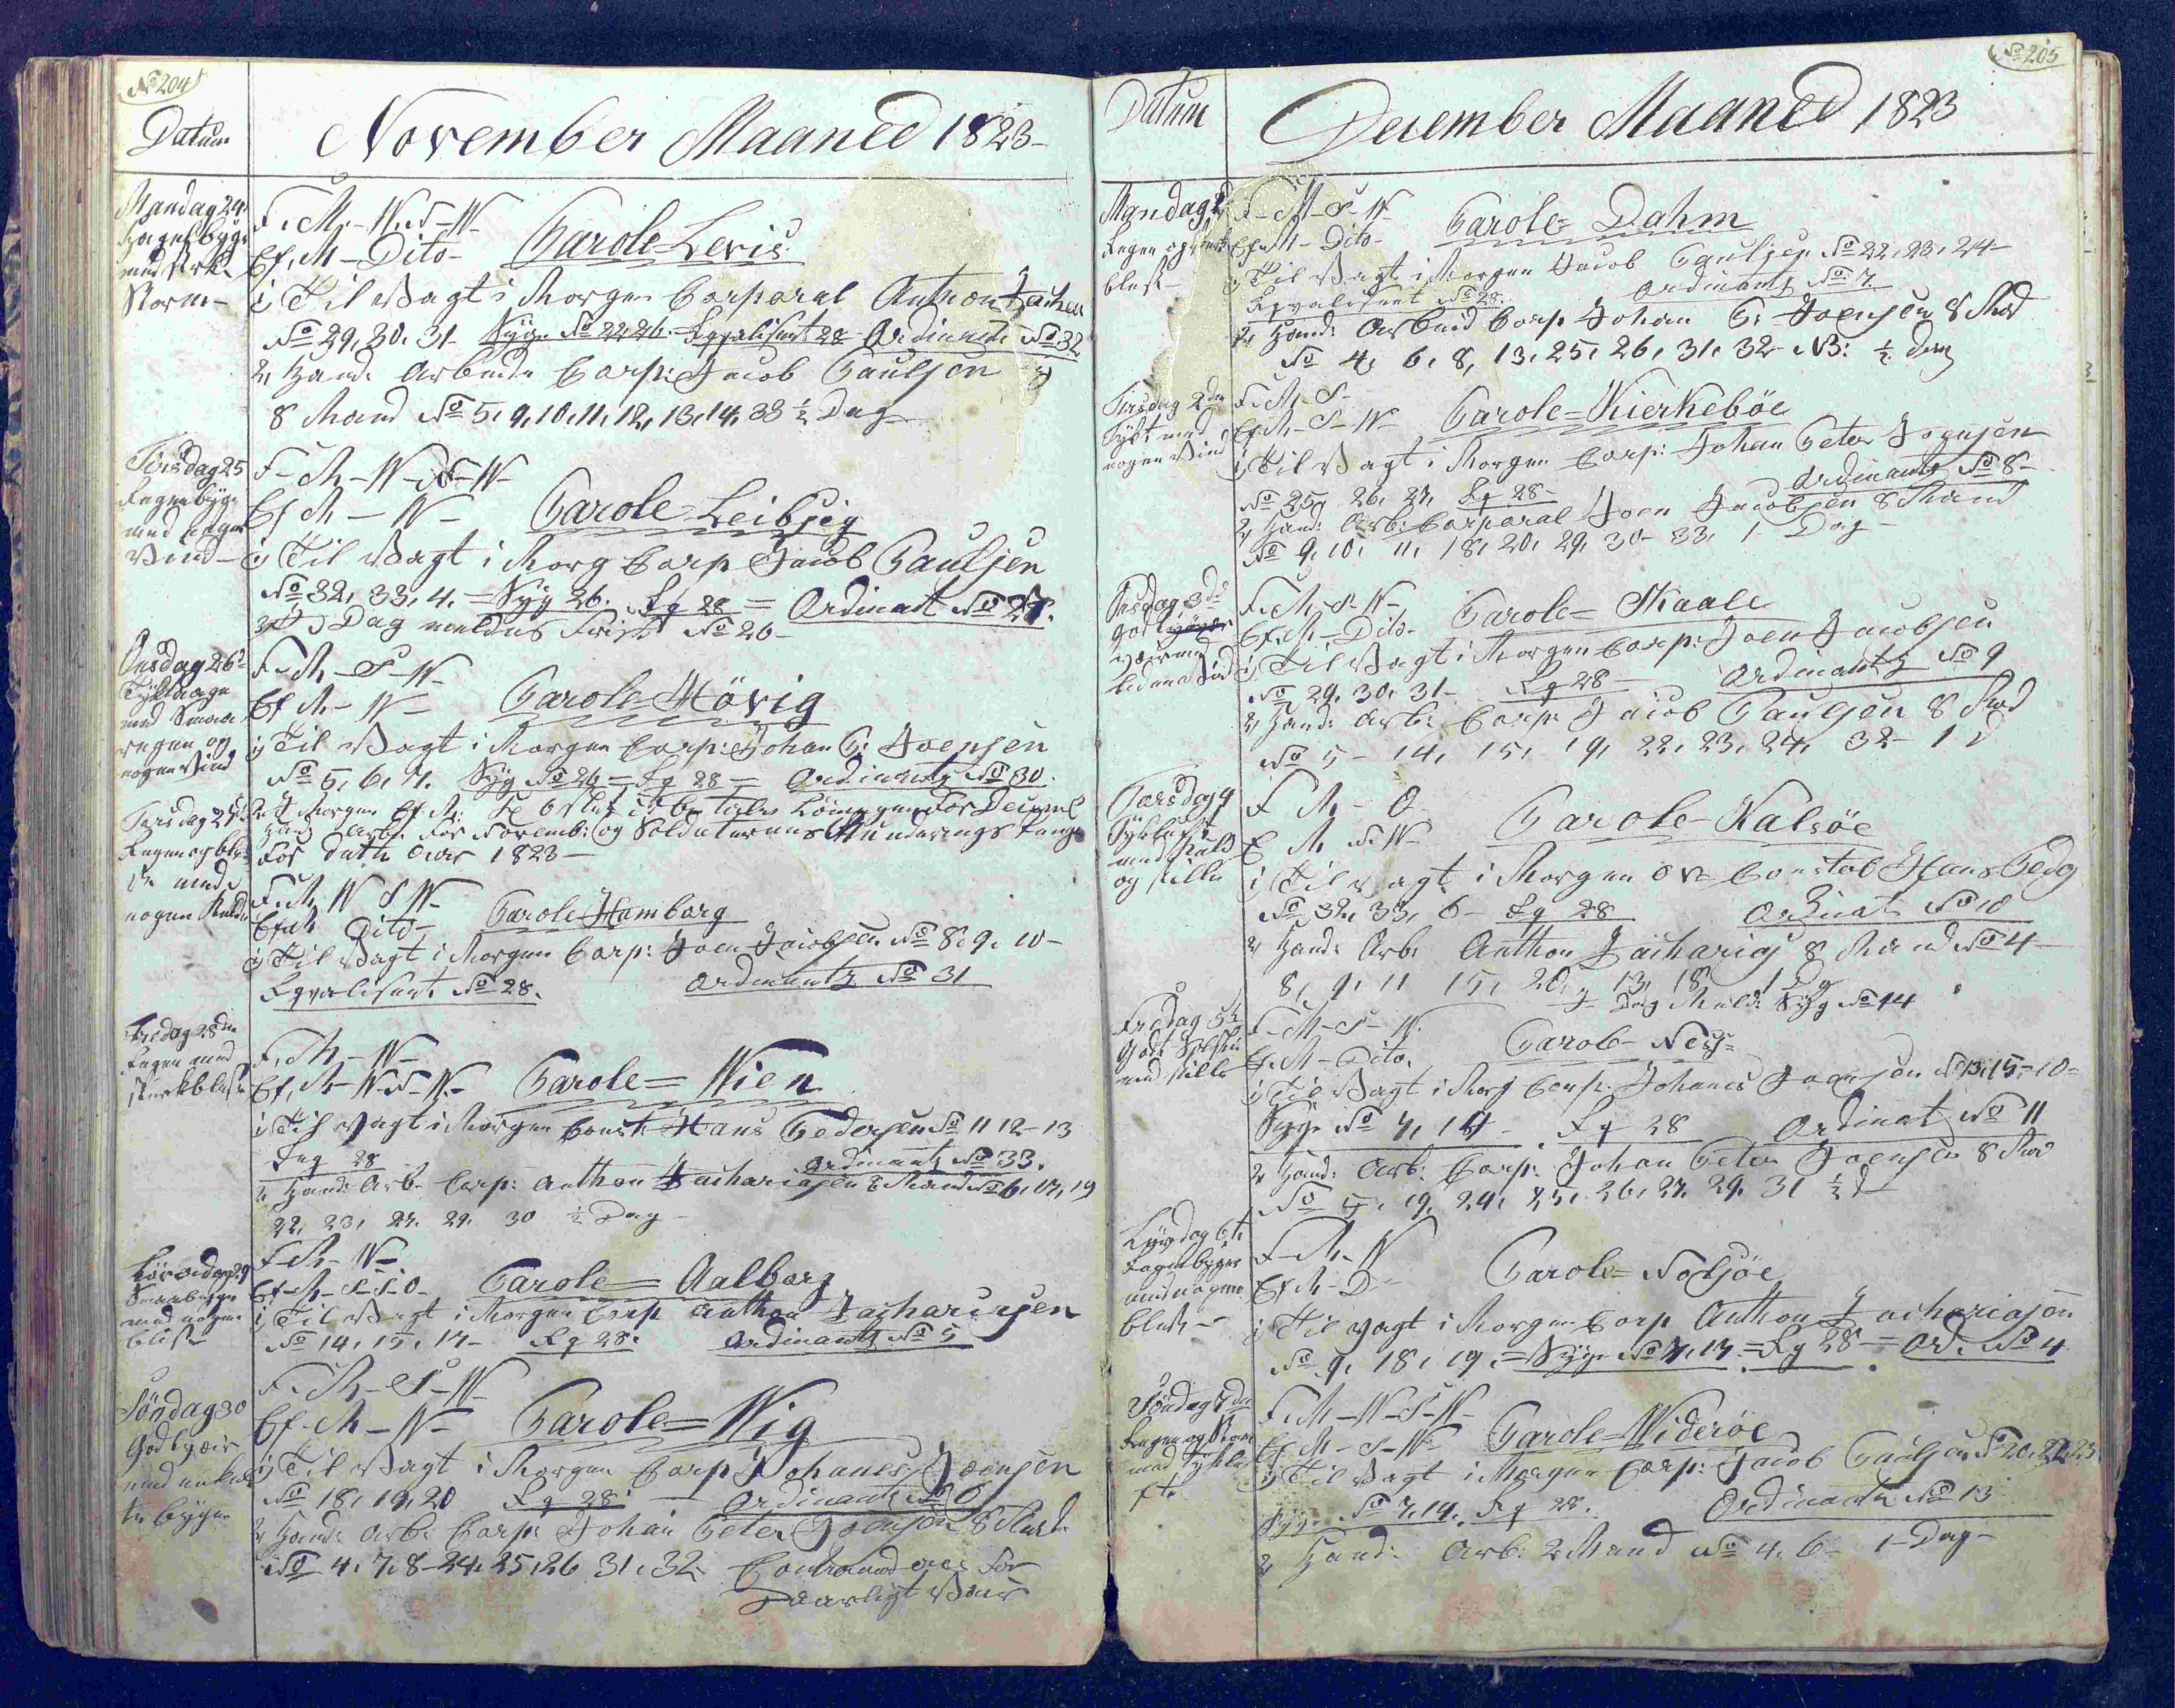 No 204
Datum
November Maaned 1823-
Mandag 24
Hagelbyge
med stærk
Storm-
F. M.- W.S-W-
Ef. M- Dito- Parole Levis
1, Til Vagt i Morgen Corporal Anthon Zachari
No 29, 30, 31- Syge No 22 26= Eqvaliseret 28- Ordinantz No 32
2, Handt Arbeide Corp: Jacob Paulsen
8 Mand No 5, 9, 10, 11, 12, 13, 14, 33 ½ Dag
Tirsdag 25
Regenbyge
med nogen
Vind-
F- M- W-S-W-
Ef M- W- Parole Leibzig
1, Til Vagt i Morg Corp Jacob Paulsen
No 32, 33, 4. = Syg 26. Eq 28 = Ordinant No 27.
Dag meldes Frisk No 26-
Onsdag 26
Tyktaage
med Smaa
regen og
nogen Vind
F. M- S- W-
Ef M- W- Parole Hövig
1, Til Vagt i Morgen Corp: Johan P. Joensen
No 5, 6, 7. Syg No 26 = Eq 28 = Ordinantz No 30.
2, I Morgen Ef M: Kl
Hand Arb: for Novemb: og Soldaternes Munderings Penge
for dette Aar 1823-
Torsdag 27
Regen og blæ
st med
nogen Kulde
F. M. W S W-
Ef M Dito- Parole Hamborg
1, Til Vagt i Morgen Corp: Joen Jacobsen No 8, 9, 10-
Eqvaliseret No 28. Ordinantz No 31
Fredag 28de
Regen med
stærkblæst
F. M- W-
Ef. M- W-S-W- Parole= Wien
1, Til Vagt i Morgen Const: Hans Pedersen No 11 12-13
Eq 28 Ordinantz No 33.
2, Handt Arb: Corp: Anthon Zachariasen 8 Mand No 6, 17, 19
22, 23, 27. 29. 30 ½ Dag-
Löverdag 29
Smaabyger
med nogen
blæst
F- M- W-
Ef- M- S-S-O- Parole= Aalborg
1, Til Vagt i Morgen Corp Anthon Zachariasen
No 14, 15, 17- Eq 28. Ordinantz No 5
Söndag 30
Godt veir
med enkel
te byger
F. M- S-W-
Ef- M- W- Parole= Wig
1, Til Vagt i Morgen Corp Johanes Joensen
No 18, 19, 20 Eq 28 - Ordinantz No 6
2, Handt Arb: Corp: Johan Peter Joensen 8 Mand
No 4, 7, 8-24, 25, 26 31, 32 Contramanderet for
daarligt Veir
No 205
Datum
December Maaned 1823
Mandag 1
Regen og stærk
blæst-
F- M- S- W-
Ef. M- Dito- Parole Dahm
1, Til Vagt i Morgen Jacob Paulsen No 22, 23, 24-
Eqvaliseret No 28. Ordinantz No 7.
2, Handt Arbeid Corp Johan P. Joensen 8 Md
No 4, 6, 8, 13, 25, 26, 31, 32- NB: ½ Dag
Tirsdag 2den
Tykt med
nogen Vind
F. M- S-
Ef M- S- W- Parole=Kierkeböe
1, Til Vagt i Morgen Corp: Johan Peter Joensen
No 25, 26, 27, Eq 28- Ordinantz No 8-
2, Hand: Arb: Corporal Joen Jacobsen 8 Mand
No 9, 10, 11, 18, 20, 29, 30- 33, 1 Dag-
Onsdag 3de
godt
veir med
liden Vind
F. M, S- W-
Ef. M.- Dito- Parole= Skaale
1, Til Vagt i Morgen Corp: Joen Jacobsen
No 29, 30, 31- Eq 28 Ordinantz No 9
2, Hand: Arb: Corp: Jacob Paulsen 8 Md
No 5- 14, 15, 19, 22, 23, 24, 32- 1 D
Torsdag 4
Tykluft
med kuld
og stille
F M- O
E M S W- Parole- Kalsöe
1, Til Vagt i Morgen Ov Constab Hans Pedg
No 32, 33, 6- Eq 28 Ordinat No 10
2, Hand: Arb: Anthon Zacharias 8 Mand No 4-
8, 9, 11 15, 20, 13, 18 1 Dg
Dag Meldt Syg No 14
Fredag 5te
godt Solskin
med stille
F- M- S- W-
Ef. M- Dito. Parole- Ness=
1, Til Vagt i Morg Corp: Johanes Joensen No 13, 15-10=
Syge No 7, 14- Eq 28 Ordinat No 11
2, Hand: Arb: Corp: Johan Peter Joensen 8 Md
No 5, 19, 24, 25, 26, 27, 29, 31 ½ d
Lövdag 6te
Regenbyger
med nogen
blæst-
F- M- W
Ef M- D- Parole= Nolsöe
1, Til Vagt i Morgen Corp Anthon Zachariasen
No 9, 18, 19, =Syge No 7, 14 =Eq 28= Ord. No 4
Söndag 7de
Regen og Storm
med Tyklu
ft.
F. M- W-S-W-
Ef M- S-W- Parole-Wideröe
1, Til Vagt i Morgen Corp: Jacob Paulsen No 20, 22, 23
Syge No 7, 14. Eq 28. Ordinantz No 13
2, Hand: Arb: 2 Mand No 4, 6- 1-Dag-